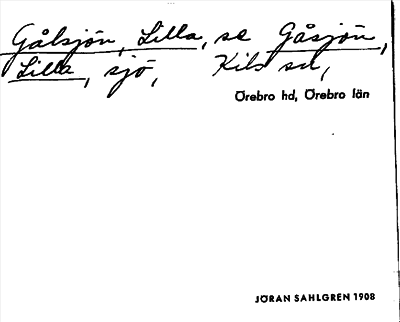 Gålsjön, Lilla, se Gåsjön,
Lilla, sjö, Kils sn,
Örebro hd, Örebro län
JÖRAN SAHLGREN 1908